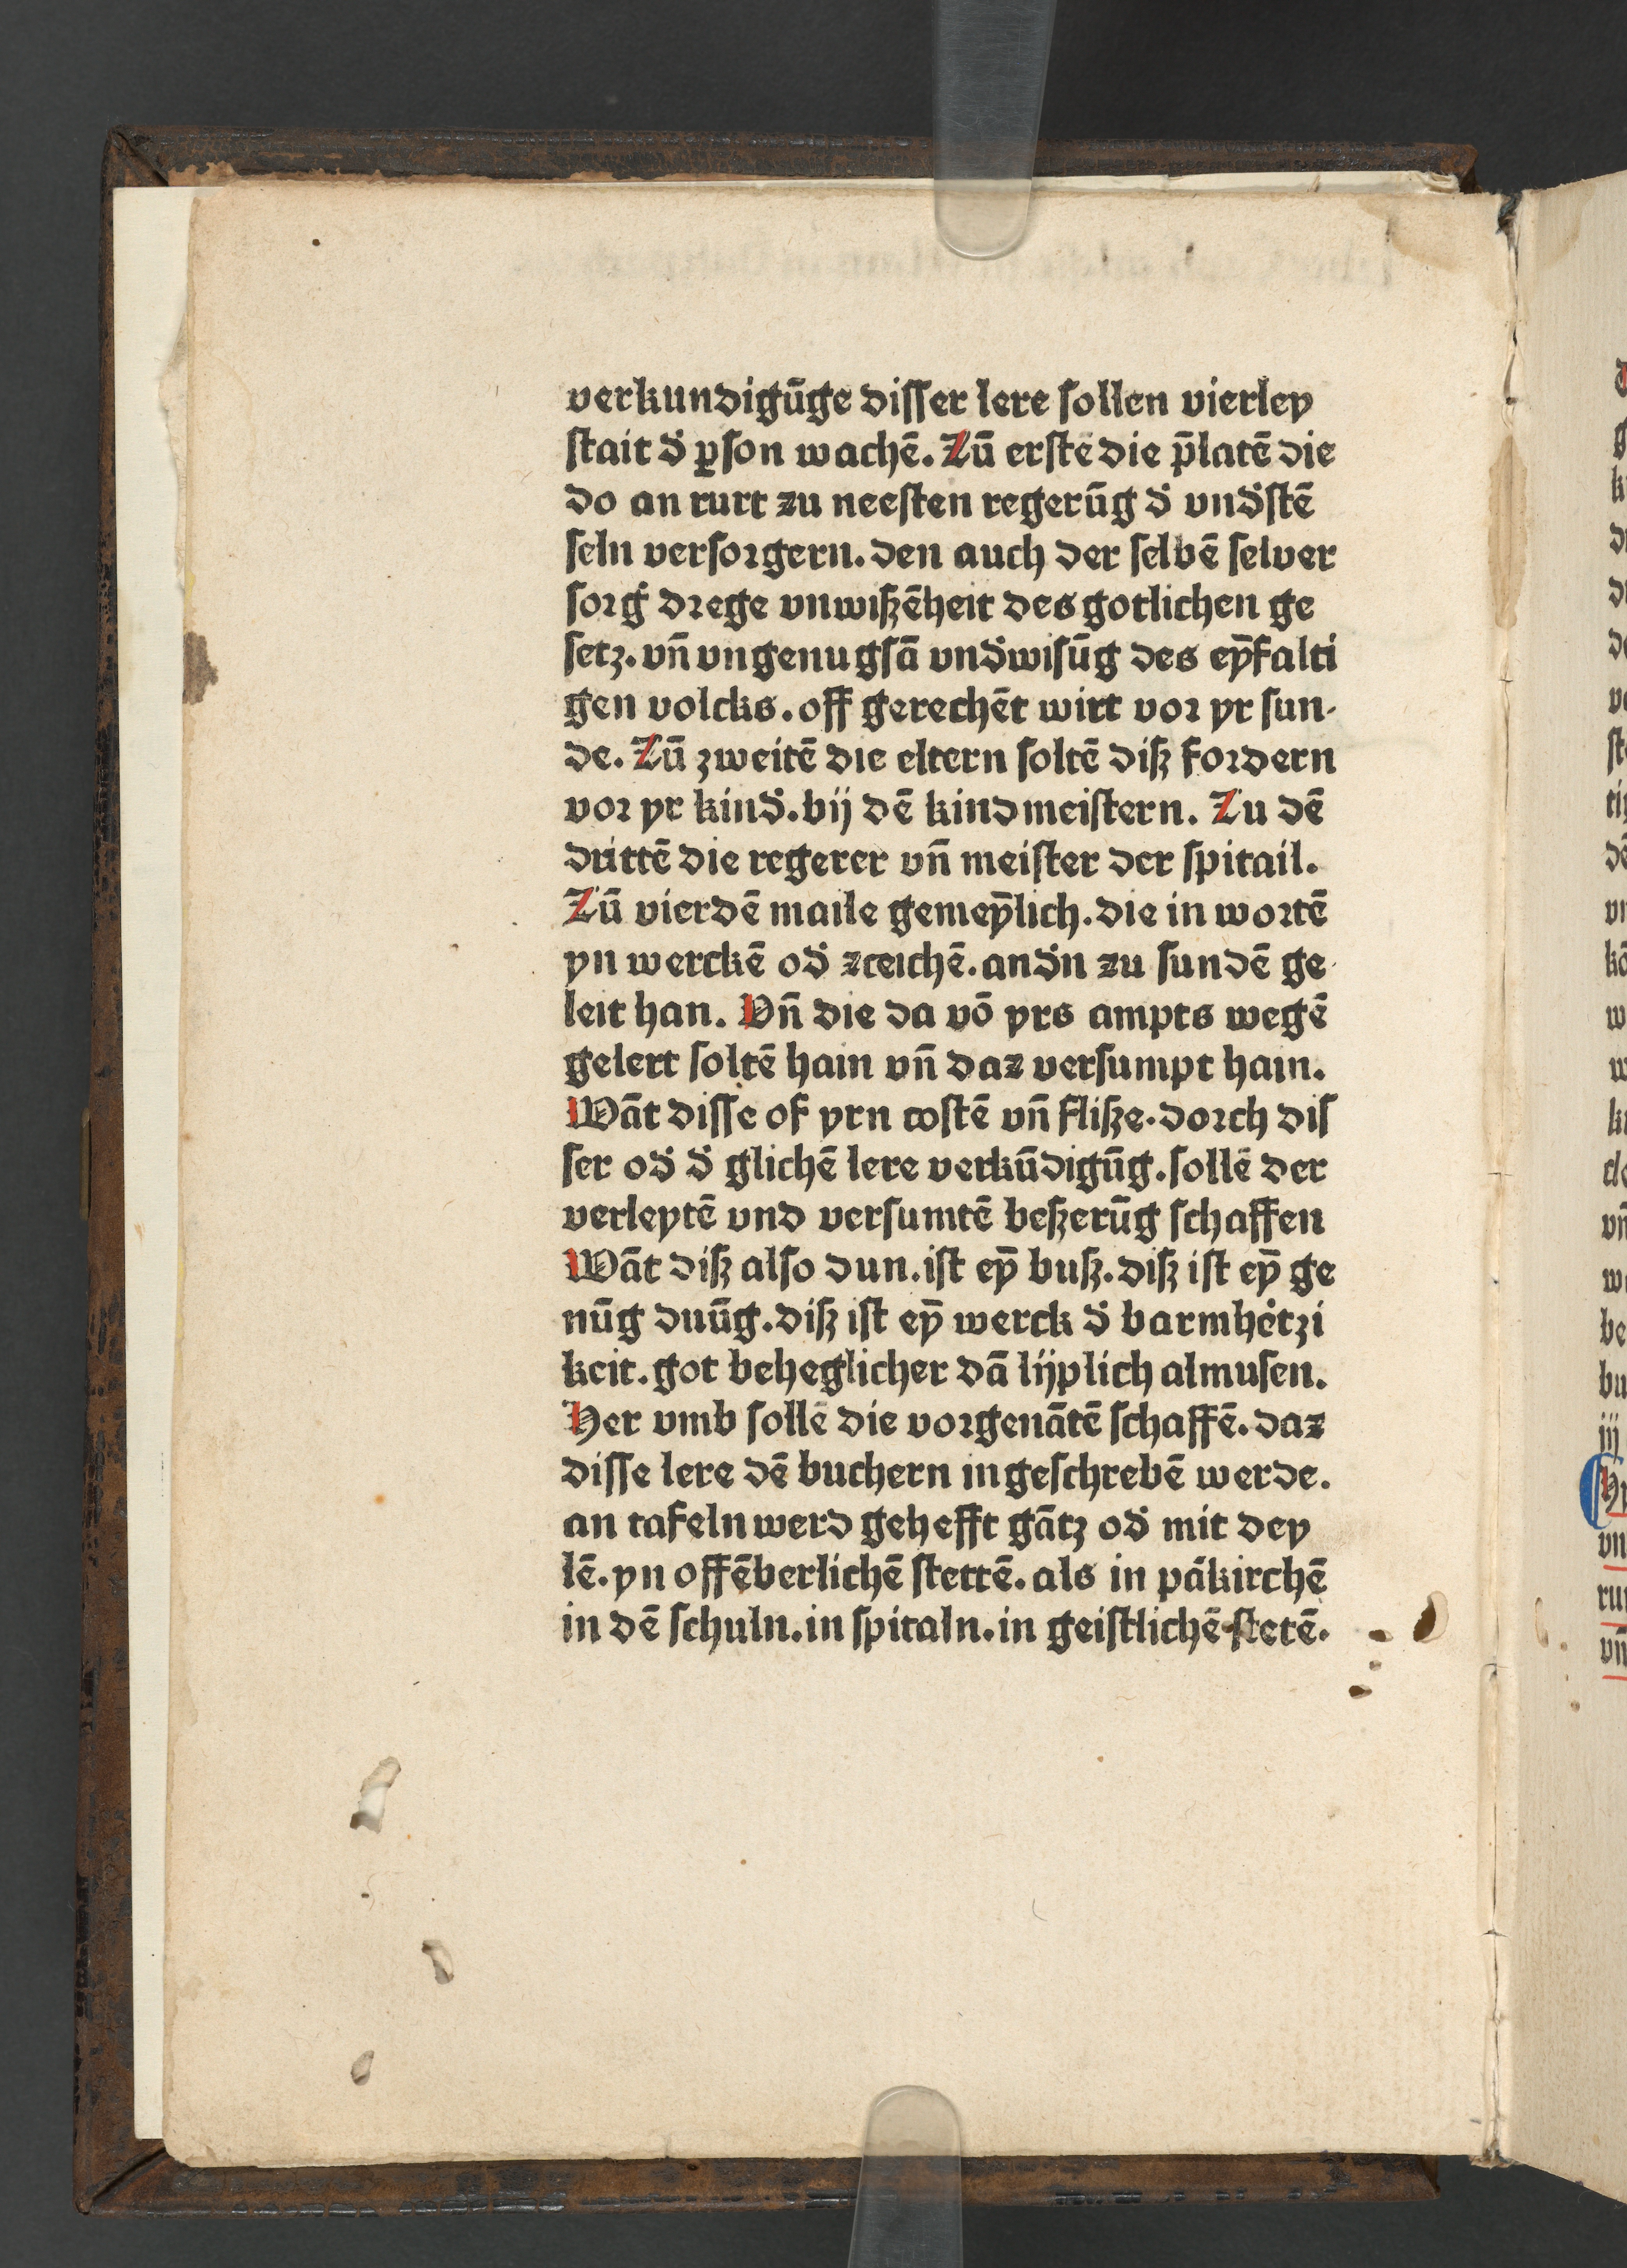 verkundigūge disſer lere sollen vierley
ſtait d̾ ꝑſon wachē. Zū erſtē die p̄latē die
do an rurt zu neeſten regerūg d̾ vnd̾ſtē
ſeln verſoꝛgern. den auch der ſelbē ſelver
ſoꝛg̾ dꝛege vnwiſzēheit des gotlichen ge
ſetz. vn̄ vngenugſā vnd̾wiſūg des eȳfalti
gen volcks. off gerechēt wirt voꝛ yr ſun-
de. Zū zweitē die eltern ſoltē diſz foꝛdern
voꝛ yr kind̾. bij dē kindmeiſtern. Zu dē
drittē die regerer vn̄ meiſter der ſpitail.
Zū vierdē maile gemeȳlich. die in woꝛtē
yn werckē od̾ zceichē. and̾n zu ſundē ge
leit han. Vn̄ die da vō yrs ampts wegē
gelert ſoltē hain vn̄ daz verſumpt hain.
Wāt diſſe of yrn coſtē vn̄ fliſze. doꝛch diſ
ſer od̾ d̾ glichē lere verkūdigūg. ſollē der
verleytē vnd verſumtē beſzerūg ſchaffen
Wāt diſz alſo dun. iſt eȳ buſz. diſz iſt eȳ ge
nūg duūg. diſz iſt eȳ werck d̾ barmhe̾tzi
keit. got beheglicher dā lijplich almuſen.
Her vmb ſollē die voꝛgenātē ſchaffē. daz
diſſe lere dē buchern ingeſchrebē werde.
an tafeln werd gehefft gātz od̾ mit dey
lē. yn offēberlichē ſtettē. als in pākirchē
in dē ſchuln. in ſpitaln. in geiſtlichē ſtetē.